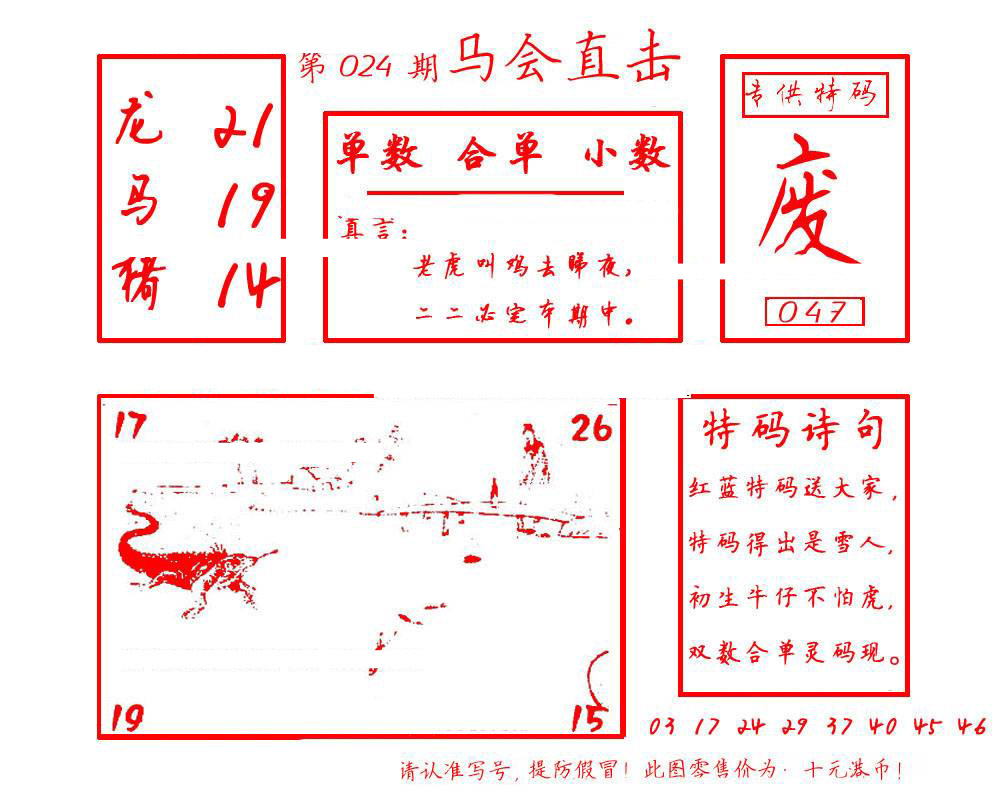 第 024 期 马会直击
龙 21
马 19
猪 14
单数 合单 小数
真言：
老虎叫鸡去睇夜，
二二必定本期中。
专供特码
废
047
17 26
19 15
特码诗句
红蓝特码送大家，
特码得出是雪人，
初生牛仔不怕虎，
双数合单灵码现。
03 17 24 29 37 40 45 46
请认准写号，提防假冒！此图零售价为·十元港币！